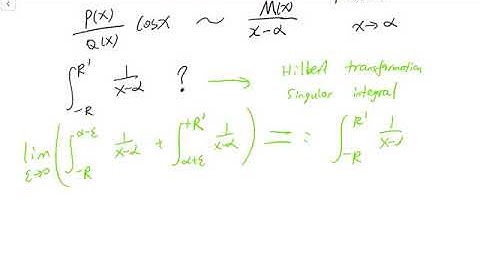 P(x)/Q(x) cosx ~ M(x)/(x-α) x→α
∫_{-R}^{R'} 1/(x-α) ? → Hilbert transformation
Singular integral
lim_{ε→0} ( ∫_{-R}^{α-ε} 1/(x-α) + ∫_{α+ε}^{+R'} 1/(x-α) ) =: ∫_{-R}^{R'} 1/(x-α)